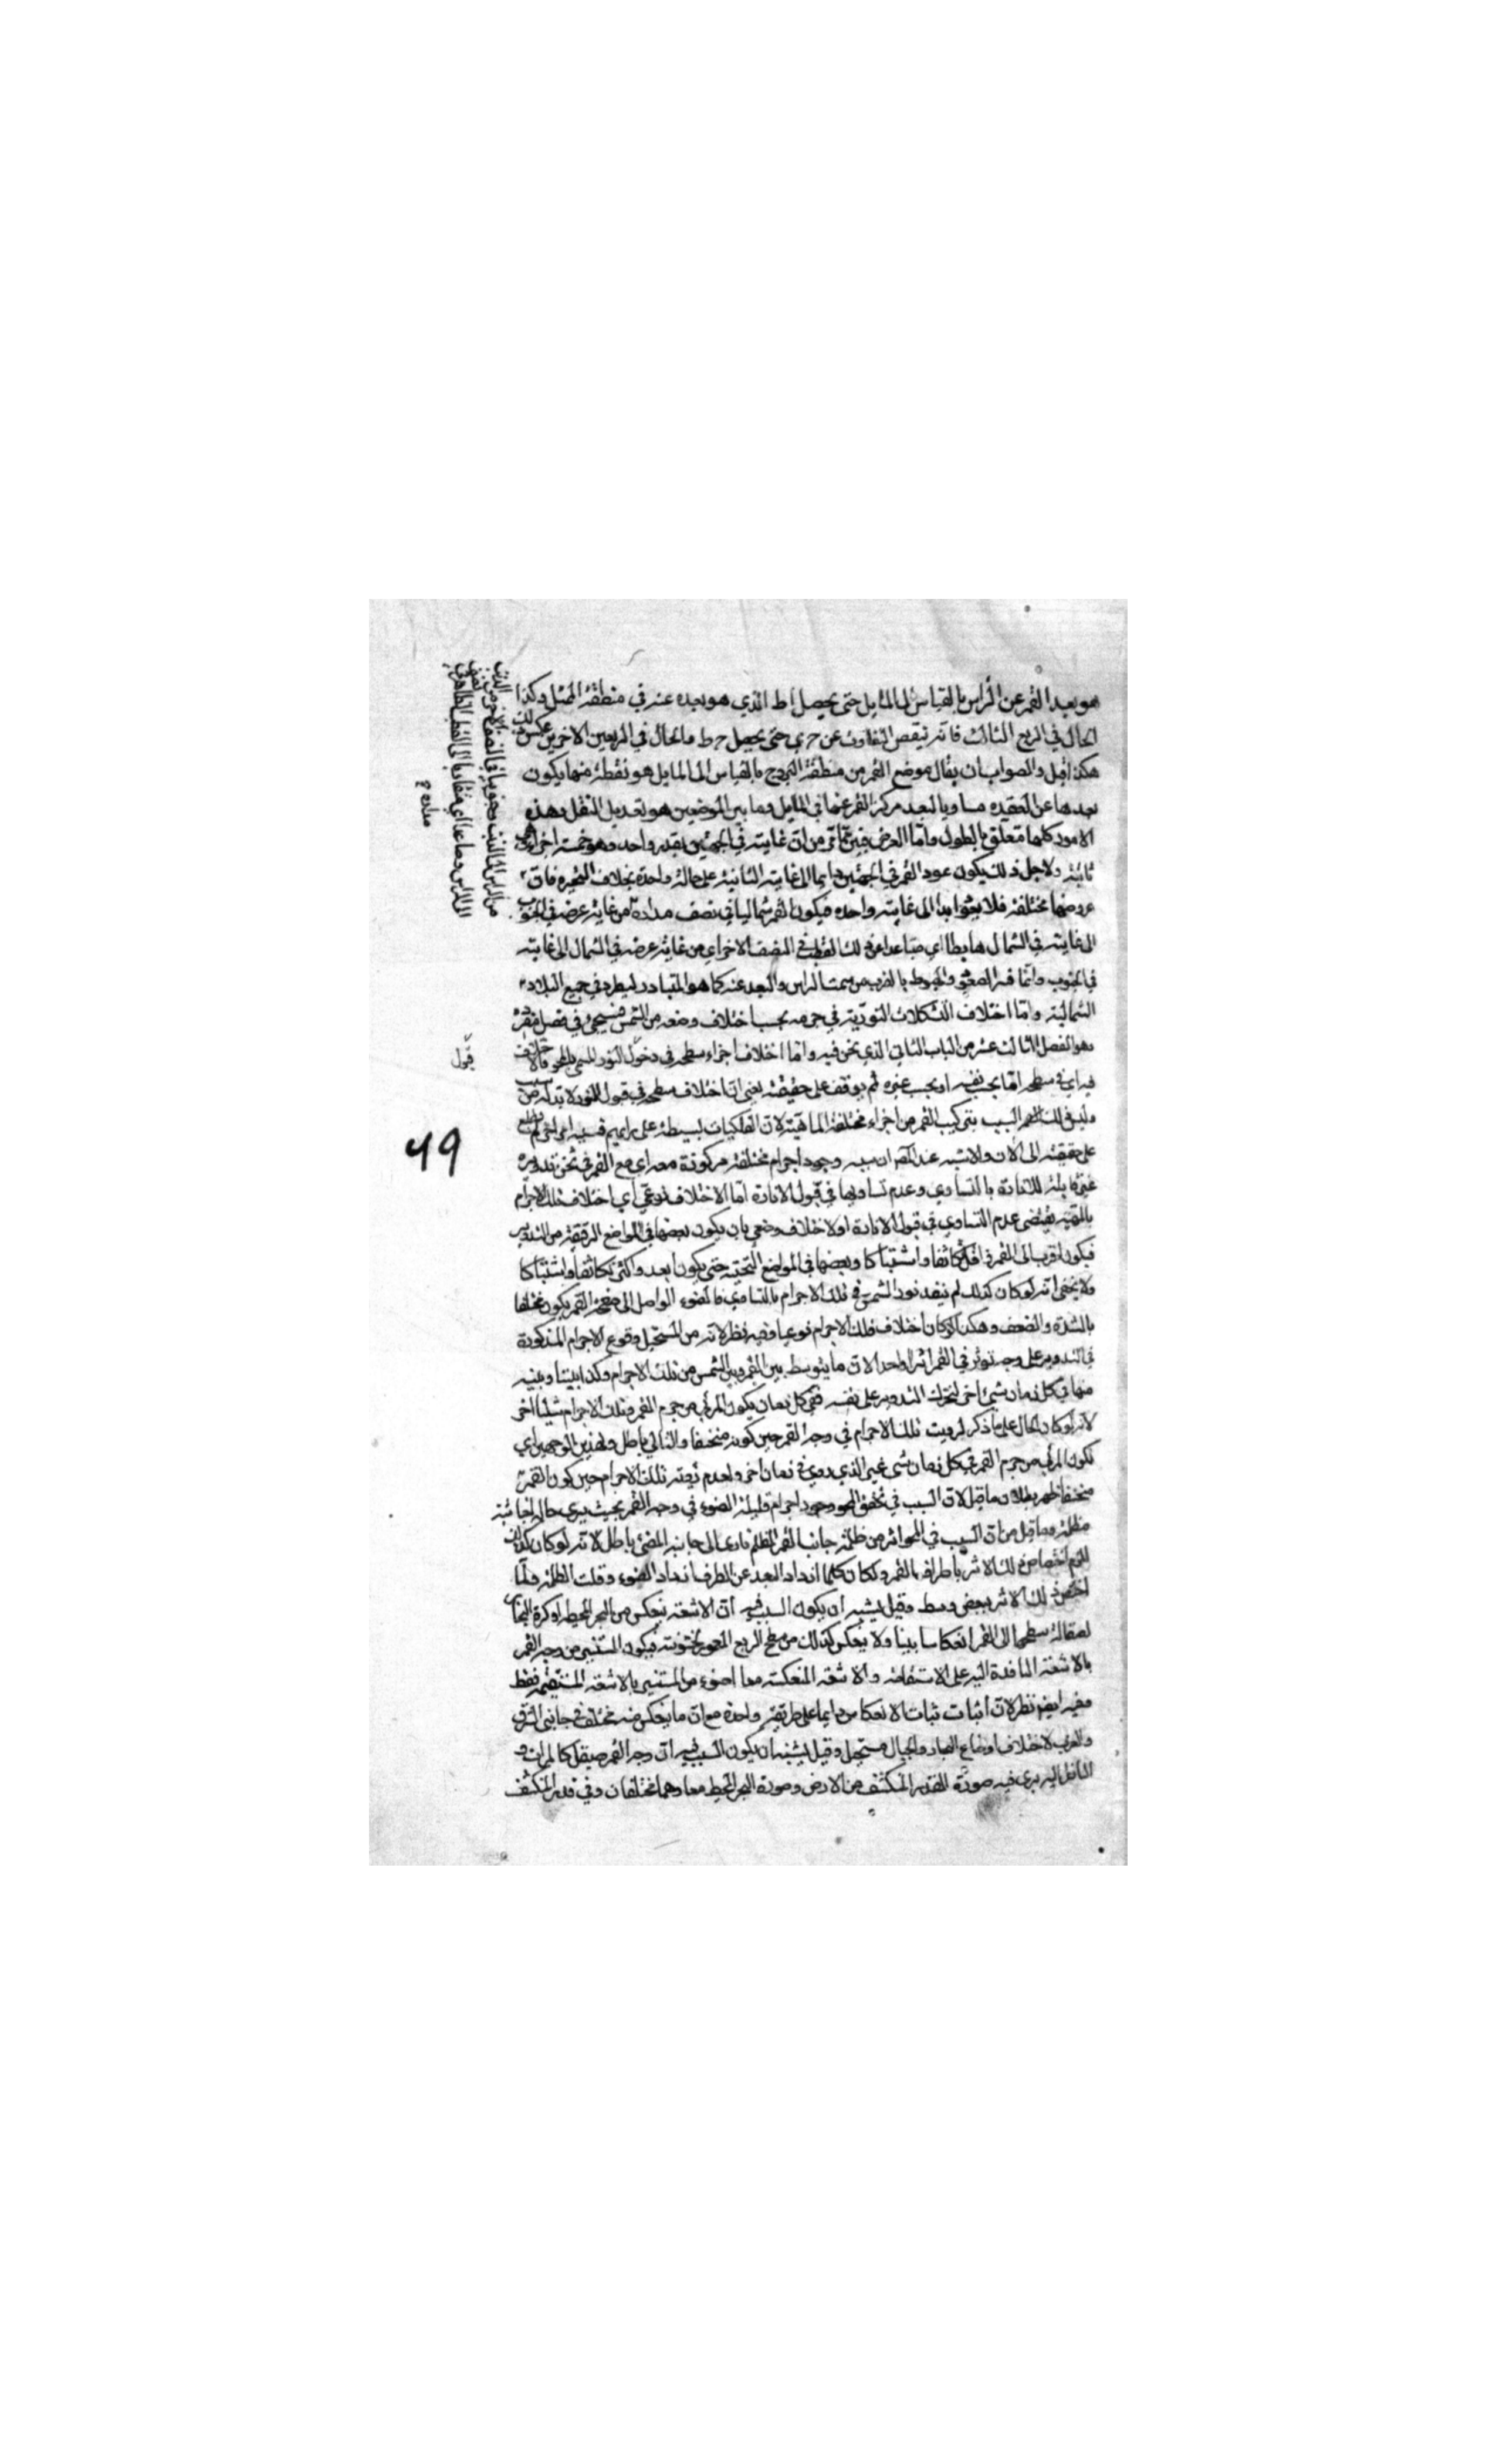 هو بعد القمر عن الراس بالقياس الى المايل حتى يحصل اط الذي هو بعده عنه في منطقة الممثل وكذا
الحال في الربع الثالث فانه ينقص التفاوت عن حتى يحصل ط ما الحال في الربعين الاخرين
هكذا قيل والصواب ان يقال موضع القمر من منطقة البروج بالقياس الى المايل هو نقطة منها يكون
بعدها عن العقدة مساويا لبعد مركز القمر عنها في المايل وما بين الموضعين هو تعديل النقل وهذه
الامور كلها متعلق بالطول واما العرض من ان غايته في الجهتين بقدر واحد وهو خمسة اجزاء
ثابتة ولاجل ذلك يكون عود القمر في الجهتين دايما الى غايته الثانية على حالة واحدة بخلاف المتحيره فان
عروضها مختلفة فلا ابدا الى غايته واحده فيكون القمر شماليا في نصف مداره من غاية عرضه في الجنوب
الى غايته في الشمال هابطا اي متباعدا عن ذلك القطب في النصف الاخر اي من غاية عرضه في الشمال الى غايته
في الجنوب وانما الصعود والهبوط بالقرب من سمت الراس والبعد عنه كما هو المتبادر ليطرد في جميع البلاد
الشمالية واما اختلاف التشكلات النورية في جرمه بحسب اختلاف وضعه من الشمس فسيجئ في فصل مفرد
وهو الفصل الثالث عشر من الباب الثاني الذي نحن فيه واما اختلاف اجزاء سطحه في دخول النور المسمى بالمحو
فيه اي في سطحه اما بحسب نفسه او بحسب غيره لم يوقف على حقيقته يعني ان اختلاف سطحه في قبول النور لا بد له من
وليس ذلك السبب تركيب القمر من اجزاء مختلفة الماهية لان الفلكيات بسيطة على رايهم
على حقيقته الى الان والاشبه عند المصـ ان سببه وجود اجرام مختلفة مركوزة معه اي مع القمر في ثخن تدويره
غير قابلة للانارة بالتساوي وعدم تساويها في قبول الانارة اما لاختلاف نوعي اي اختلاف تلك الاجرام
بالماهية يقتضى عدم التساوي في قبول الانارة او لاختلاف وضعي بان يكون بعضها في المواضع الرقيقة من التدوير
فيكون اقرب الى القمر في اقل تكاثفا واشتباكا وبعضها في المواضع الثخينة حتى يكون ابعد واكثر تكاثفا واشتباكا
ولا يخفى انه لو كان كذلك لم ينفذ نور الشمس في تلك الاجرام بالتساوي فالضوء الواصل الى صفحة القمر يكون مختلفا
بالشدة والضعف وهكذا لو كان اختلاف تلك الاجرام نوعيا وفيه نظر لانه من المستحيل وقوع الاجرام المذكورة
في التدوير على وجه تؤثر في القمر اثرا واحدا لان ما يتوسط بين القمر وبين الشمس من تلك الاجرام وكذا بيننا وبينه
منها في كل زمان شيئ اخر لتحرك التدوير على نفسه ففي كل زمان يكون المرئى من جرم القمر وتلك الاجرام شيئا اخر
لانه لو كان الحال على ما ذكر لرويت تلك الاجرام في وجه القمر حين كونه منخسفا والتالي باطل ولهذين الوجهين اي
لكون المرئى من جرم القمر في كل زمان شئ غير الذي روى في زمان اخر ولعدم رؤية تلك الاجرام حين كون القمر
منخسفا ظهر بطلان ما قيل لان السبب في تحقق المحو وجود اجرام قليلة الضوء في وجه القمر بحيث يرى
مظلمة وما قيل من ان السبب في المحو اثر من ظلمة جانب القمر المظلم تادى الى جانبه المضئ باطل لانه لو كان كذلك
للزم اختصاص ذلك الاثر باطراف القمر ولكان كلما ازداد البعد عن الطرف ازداد الضوء وقلت الظلمة ولما
اختص ذلك الاثر ببعض وسط وقيل يشبه ان يكون السبب فيه ان الاشعة تنعكس من البحر المحيط او كرة البخار
لصقالة سطحها الى القمر انعكاسا بينا ولا ينعكس كذلك من سطح الربع المعمور لخشونته فيكون المستنير من وجه القمر
بالاشعة النافذة اليه على الاستقامة والاشعة المنعكسة معا اضوء من المستنير بالاشعة المستقيمة فقط
وفيه ايضا نظر لان اثبات ثبات الانعكاس دايما على طريقة واحدة مع ان ما ينعكس منه مختلف في جانبي الشرق
والغرب لاختلاف اوضاع البحار والجبال مستحيل وقيل يشبه ان يكون السبب فيه ان وجه القمر صيقل كالمرات و
الناظر اليه يرى فيه صورة القدر المنكشف من الارض وصورة البحر المحيط معا وهما مختلفان وفي قدر المنكشف
مداره
قبول
49